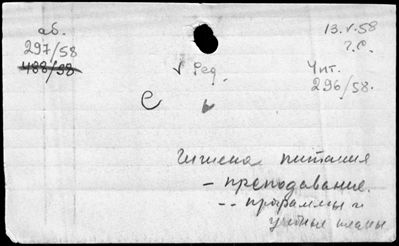 аб.
297/58
488/58
13.V.58
г.С.
V Ред.
Чит.
296/58.
С
V
Гигиена питания
- преподавание.
-- программы и
учебные планы